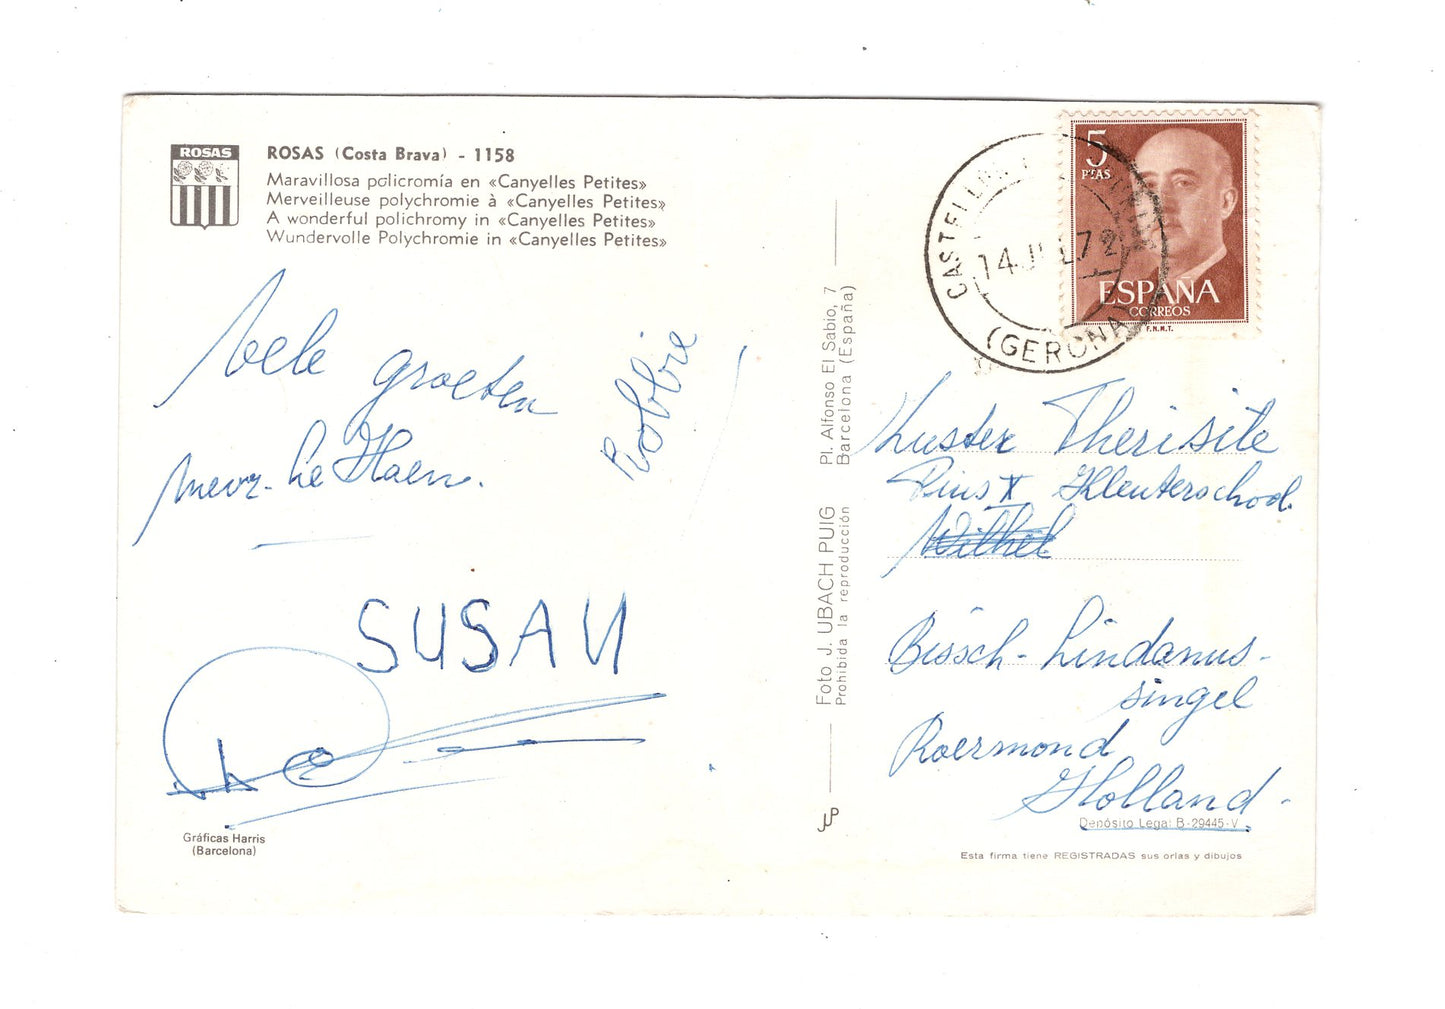 ROSAS
ROSAS (Costa Brava) - 1158
Maravillosa policromía en «Canyelles Petites»
Merveilleuse polychromie à «Canyelles Petites»
A wonderful polichromy in «Canyelles Petites»
Wundervolle Polychromie in «Canyelles Petites»
Vele groeten
Mevr. Le Haen.
Robbie
SUSAN
Gráficas Harris
(Barcelona)
Pl. Alfonso El Sabio, 7
Barcelona (España)
Foto J. UBACH PUIG
Prohibida la reproducción
5
PTAS
ESPAÑA
CORREOS
F.N.M.T.
14 JUL 72
(GERONA)
Zuster Therisite
Pius X Kleuterschool
Wilhel
Bissch-Lindanus-
singel
Roermond
Holland-
Depósito Legal B-29445-V
Esta firma tiene REGISTRADAS sus orlas y dibujos